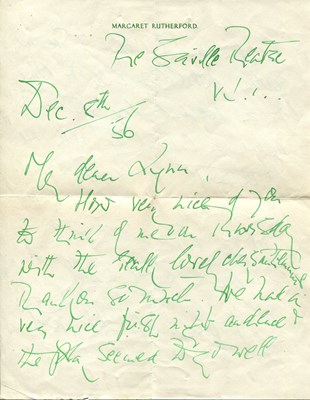 MARGARET RUTHERFORD.
The Saville Theatre
Dec. 8th
/56
My dear
How very nice of you
to think of me on Thursday
with the really lovely
Thank you so much. We had a
very nice first night and
the play seemed to go well